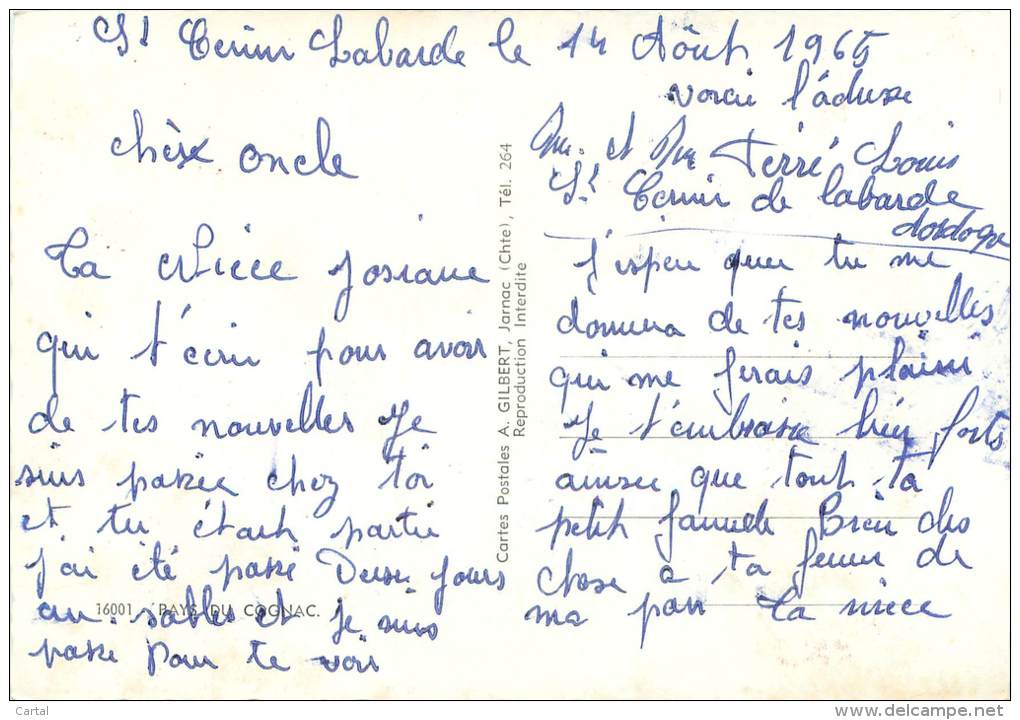 St Cernin Labarde le 14 Aôut 1965
voici l'adresse
chère oncle
Mr. et Mme Terré Louis
St Cernin de labarde
dordogne
Ta Niece Josiane
qui t'écrir pour avoir
de tes nouvelles Je
suis passée chez toi
et tu étais partie
j'ai été passé Deux jours
au sables et je suis
passé pour te voir
J'esper quer tu me
donnera de tes nouvelles
qui me ferais plaisir
Je t'embrasse bien forts
ainsie que tout ta
petit famille Bien des
chose a ta femme de
ma par Ta niece
Cartes Postales A. GILBERT, Jarnac (Chte), Tél. 264
Reproduction Interdite
16001 PAYS DU COGNAC.
Cartal
www.delcampe.net